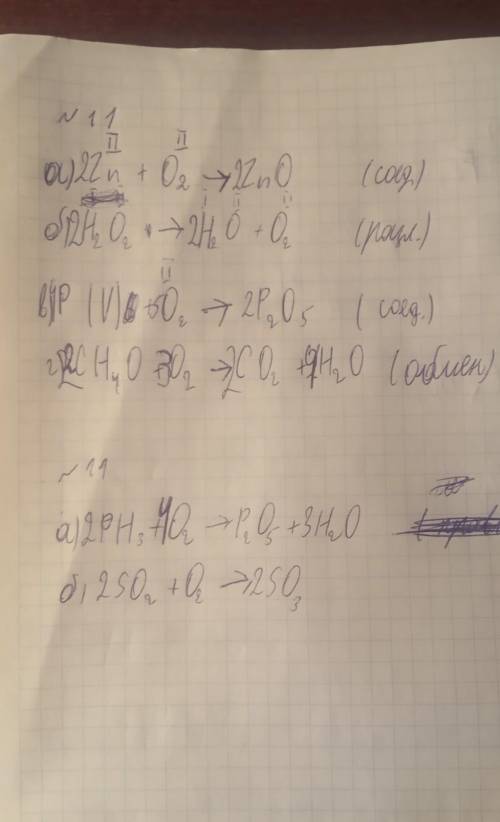 № 11
II II
а) 2Zn + O₂ → 2ZnO (соед.)
I II II
б) 2H₂O₂ → 2H₂O + O₂ (разл.)
II
в) 4P (V) + 5O₂ → 2P₂O₅ (соед.)
г) 2CH₄O + 3O₂ → 2CO₂ + 4H₂O (обмен)
№ 11
а) 2PH₃ + 4O₂ → P₂O₅ + 3H₂O
б) 2SO₂ + O₂ → 2SO₃